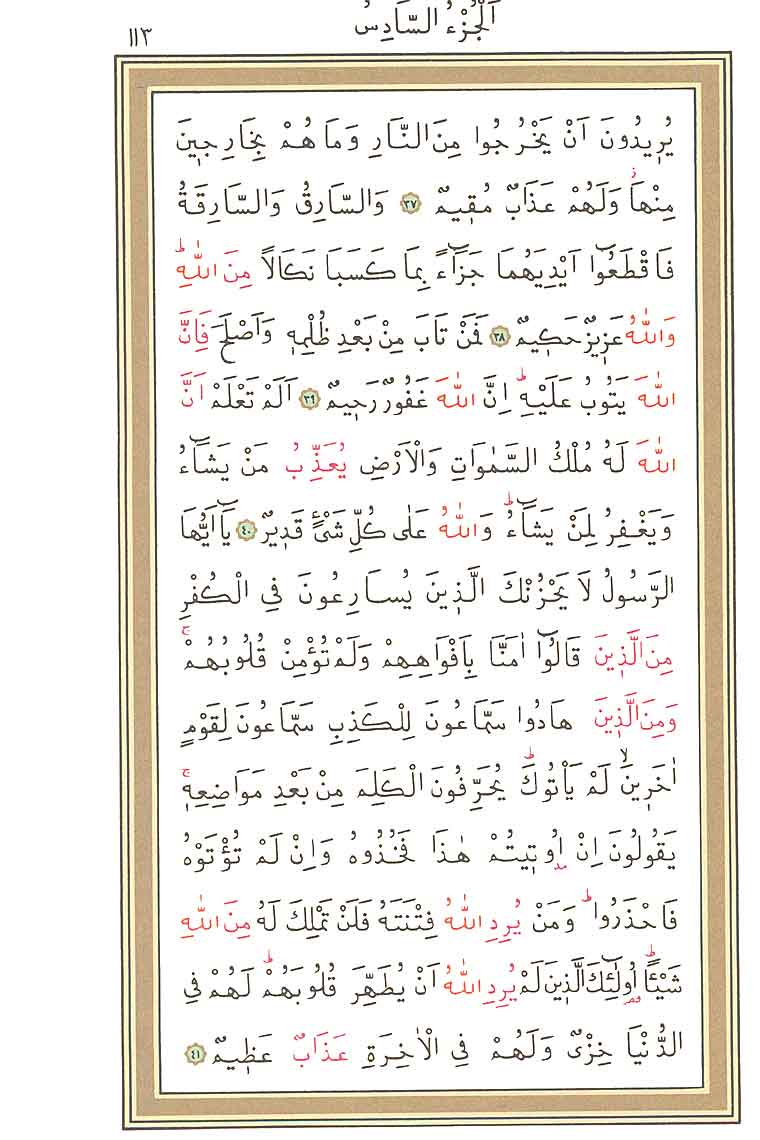 اَلْجُزْءُ السَّادِسُ
١١٣
يُرِيدُونَ اَنْ يَخْرُجُوا مِنَ النَّارِ وَمَا هُمْ بِخَارِجِينَ
مِنْهَاۘ وَلَهُمْ عَذَابٌ مُقِيمٌ ٣٧ وَالسَّارِقُ وَالسَّارِقَةُ
فَاقْطَعُٓوا اَيْدِيَهُمَا جَزَٓاءً بِمَا كَسَبَا نَكَالاً مِنَ اللّٰهِۜ
وَاللّٰهُ عَزِيزٌ حَكِيمٌ ٣٨ فَمَنْ تَابَ مِنْ بَعْدِ ظُلْمِهٖ وَاَصْلَحَ فَاِنَّ
اللّٰهَ يَتُوبُ عَلَيْهِۜ اِنَّ اللّٰهَ غَفُورٌ رَحِيمٌ ٣٩ اَلَمْ تَعْلَمْ اَنَّ
اللّٰهَ لَهُ مُلْكُ السَّمٰوَاتِ وَالْاَرْضِ يُعَذِّبُ مَنْ يَشَٓاءُ
وَيَغْفِرُ لِمَنْ يَشَٓاءُۜ وَاللّٰهُ عَلٰى كُلِّ شَيْءٍ قَدِيرٌ ٤٠ يَٓا اَيُّهَا
الرَّسُولُ لَا يَحْزُنْكَ الَّذِينَ يُسَارِعُونَ فِي الْكُفْرِ
مِنَ الَّذِينَ قَالُٓوا اٰمَنَّا بِاَفْوَاهِهِمْ وَلَمْ تُؤْمِنْ قُلُوبُهُمْۚ
وَمِنَ الَّذِينَ هَادُوا سَمَّاعُونَ لِلْكَذِبِ سَمَّاعُونَ لِقَوْمٍ
اٰخَرِينَۙ لَمْ يَأْتُوكَۜ يُحَرِّفُونَ الْكَلِمَ مِنْ بَعْدِ مَوَاضِعِهٖۚ
يَقُولُونَ اِنْ اُو۫تِيتُمْ هٰذَا فَخُذُوهُ وَاِنْ لَمْ تُؤْتَوْهُ
فَاحْذَرُواۜ وَمَنْ يُرِدِ اللّٰهُ فِتْنَتَهُ فَلَنْ تَمْلِكَ لَهُ مِنَ اللّٰهِ
شَيْـًٔاۜ اُو۬لٰٓئِكَ الَّذِينَ لَمْ يُرِدِ اللّٰهُ اَنْ يُطَهِّرَ قُلُوبَهُمْۜ لَهُمْ فِي
الدُّنْيَا خِزْيٌ وَلَهُمْ فِي الْاٰخِرَةِ عَذَابٌ عَظِيمٌ ٤١